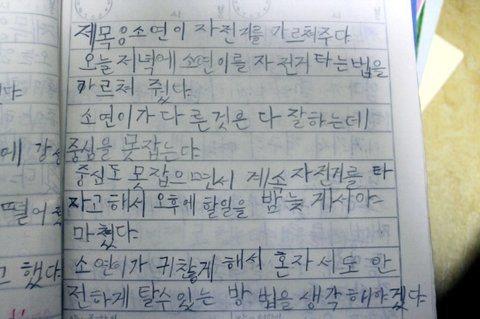 제목응소연이 자전거를 가르쳐주다
오늘 저녁에 소연이를 자전거 타는법을
가르쳐 줬다.
소연이가 다른것은 다 잘하는데
중심을 못잡는다
중심도 못잡으면서 계속 자전거를 타
자고해서 오후에 할일을 밤늦게서야
마쳤다.
소연이가 귀찮게 해서 혼자서도 안
전하게 탈수있는 방법을 생각해야겠다
에
떨어
고 했다